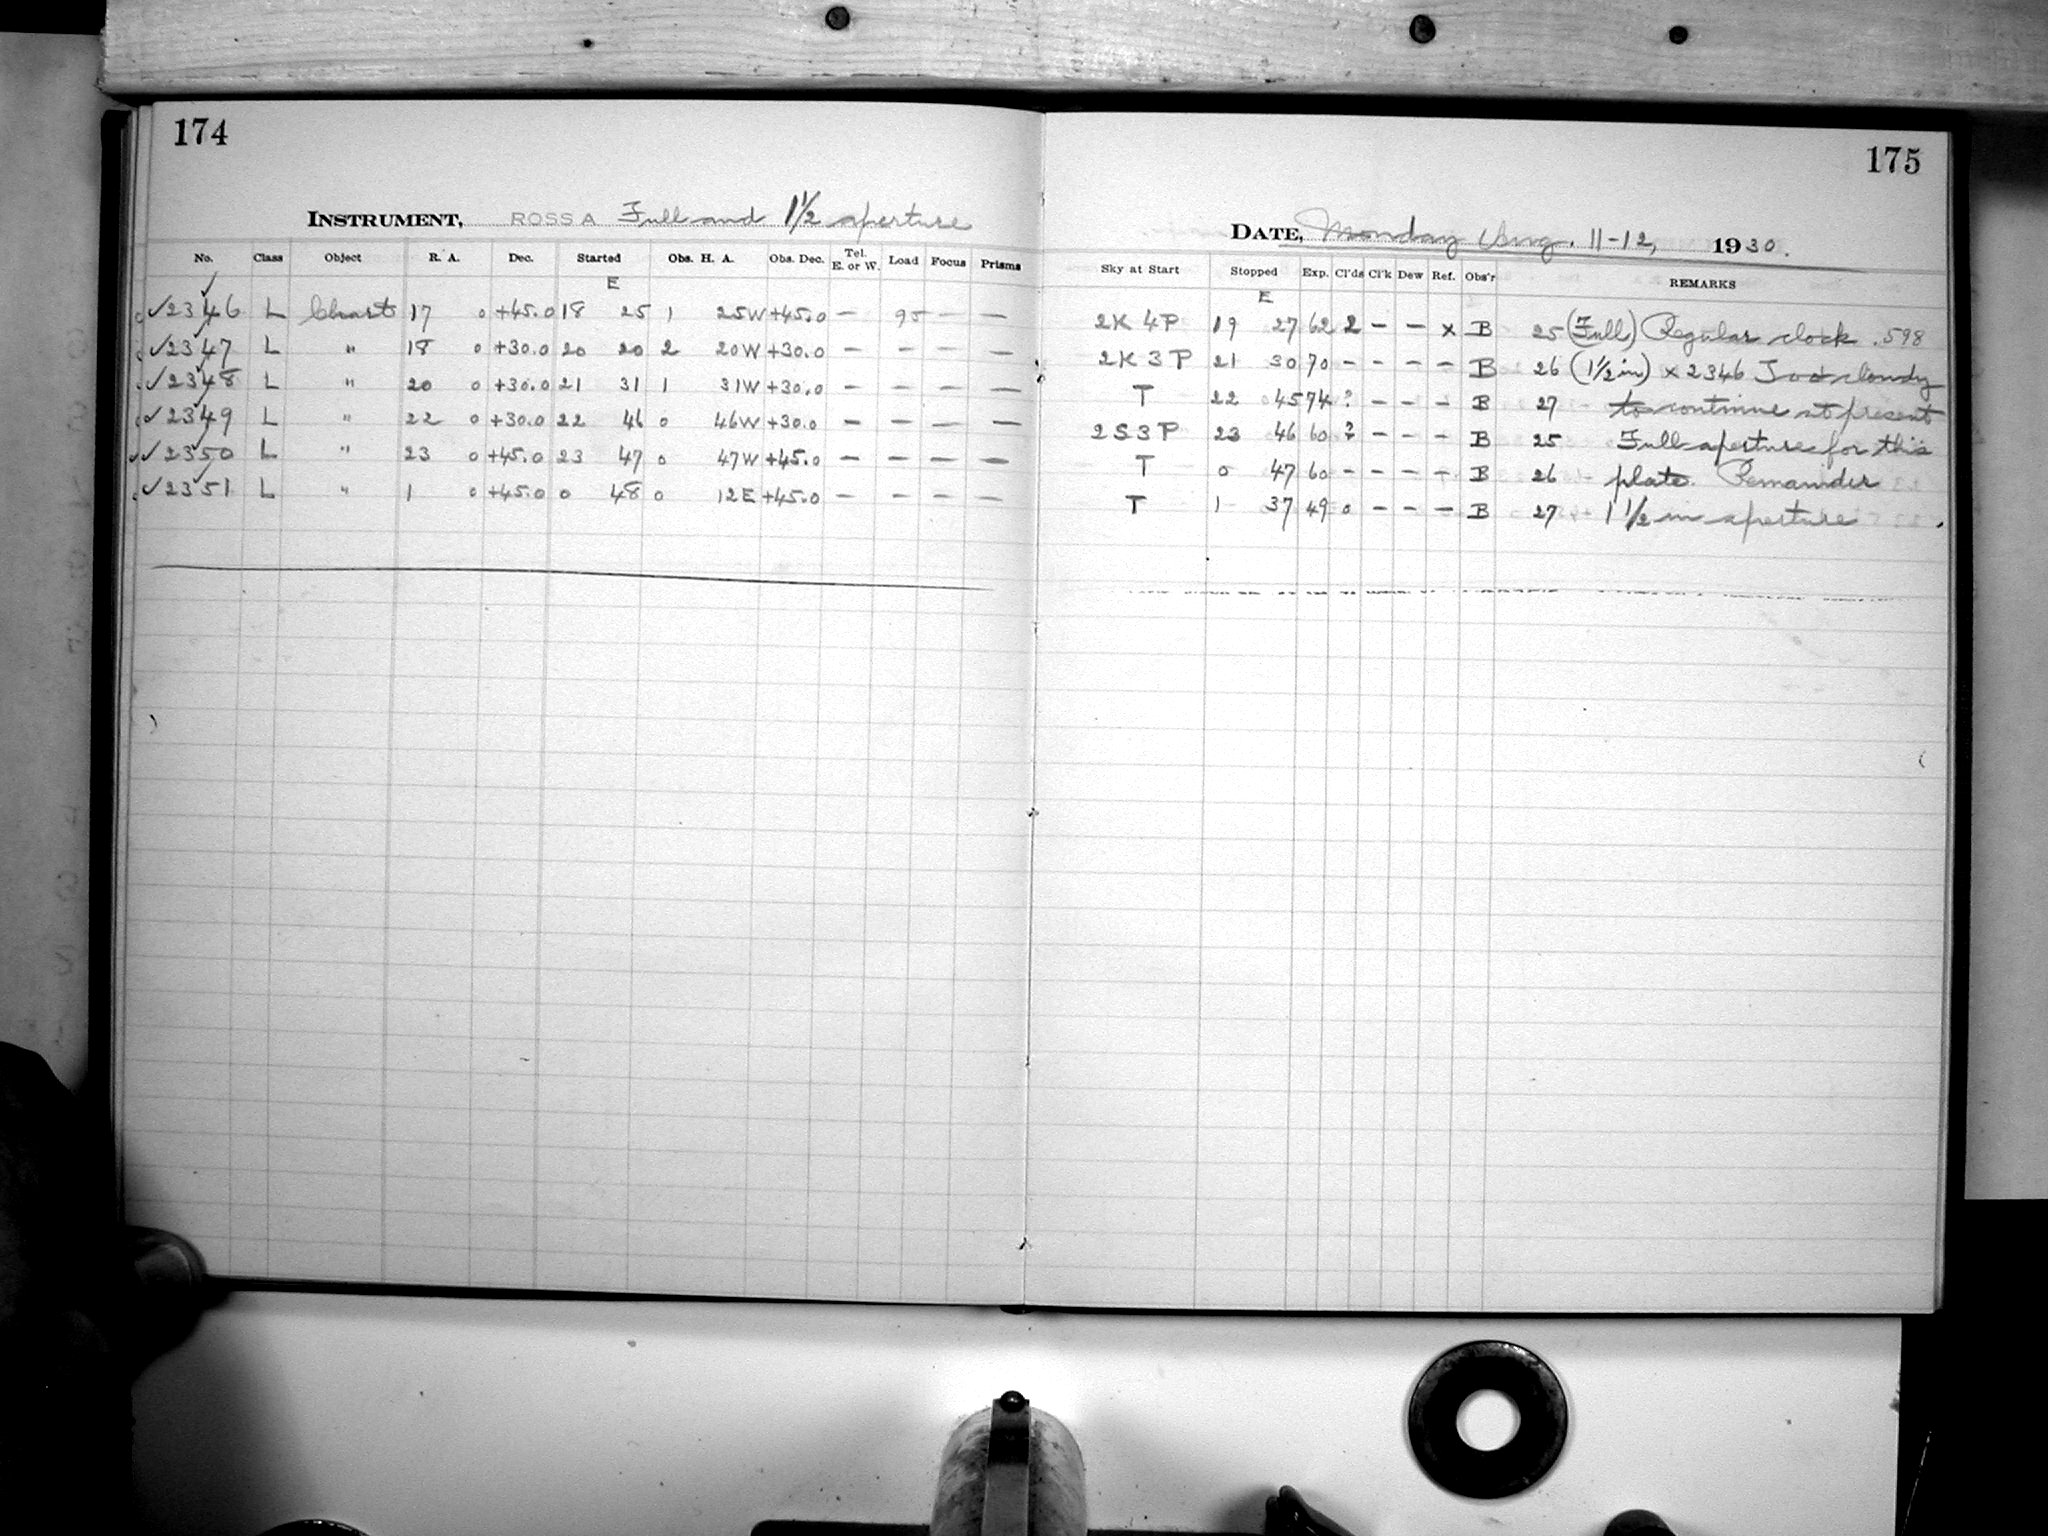 174
INSTRUMENT, ROSS A Full and 1½ aperture
No. Class Object R. A. Dec. Started Obs. H. A. Obs. Dec. Tel. E. or W. Load Focus Prisms
E
✓2346 L Chart 17 0 +45.0 18 25 1 25W +45.0 — 95 — —
✓2347 L " 18 0 +30.0 20 20 2 20W +30.0 — — — —
✓2348 L " 20 0 +30.0 21 31 1 31W +30.0 — — — —
✓2349 L " 22 0 +30.0 22 46 0 46W +30.0 — — — —
✓2350 L " 23 0 +45.0 23 47 0 47W +45.0 — — — —
✓2351 L " 1 0 +45.0 0 48 0 12E +45.0 — — — —
175
DATE, Monday Aug. 11-12, 1930.
Sky at Start Stopped Exp. Cl'ds Cl'k Dew Ref. Obs'r REMARKS
E
2K 4P 19 27 62 2 — — x B 25 (Full) Regular clock .598
2K 3P 21 30 70 — — — — B 26 (1½ in) x 2346 Too cloudy
T 22 45 74 ? — — — B 27 to continue at present
2S3P 23 46 60 ? — — — B 25 Full aperture for this
T 0 47 60 — — — — B 26 plate. Remainder
T 1 37 49 0 — — — B 27 1½ in aperture.